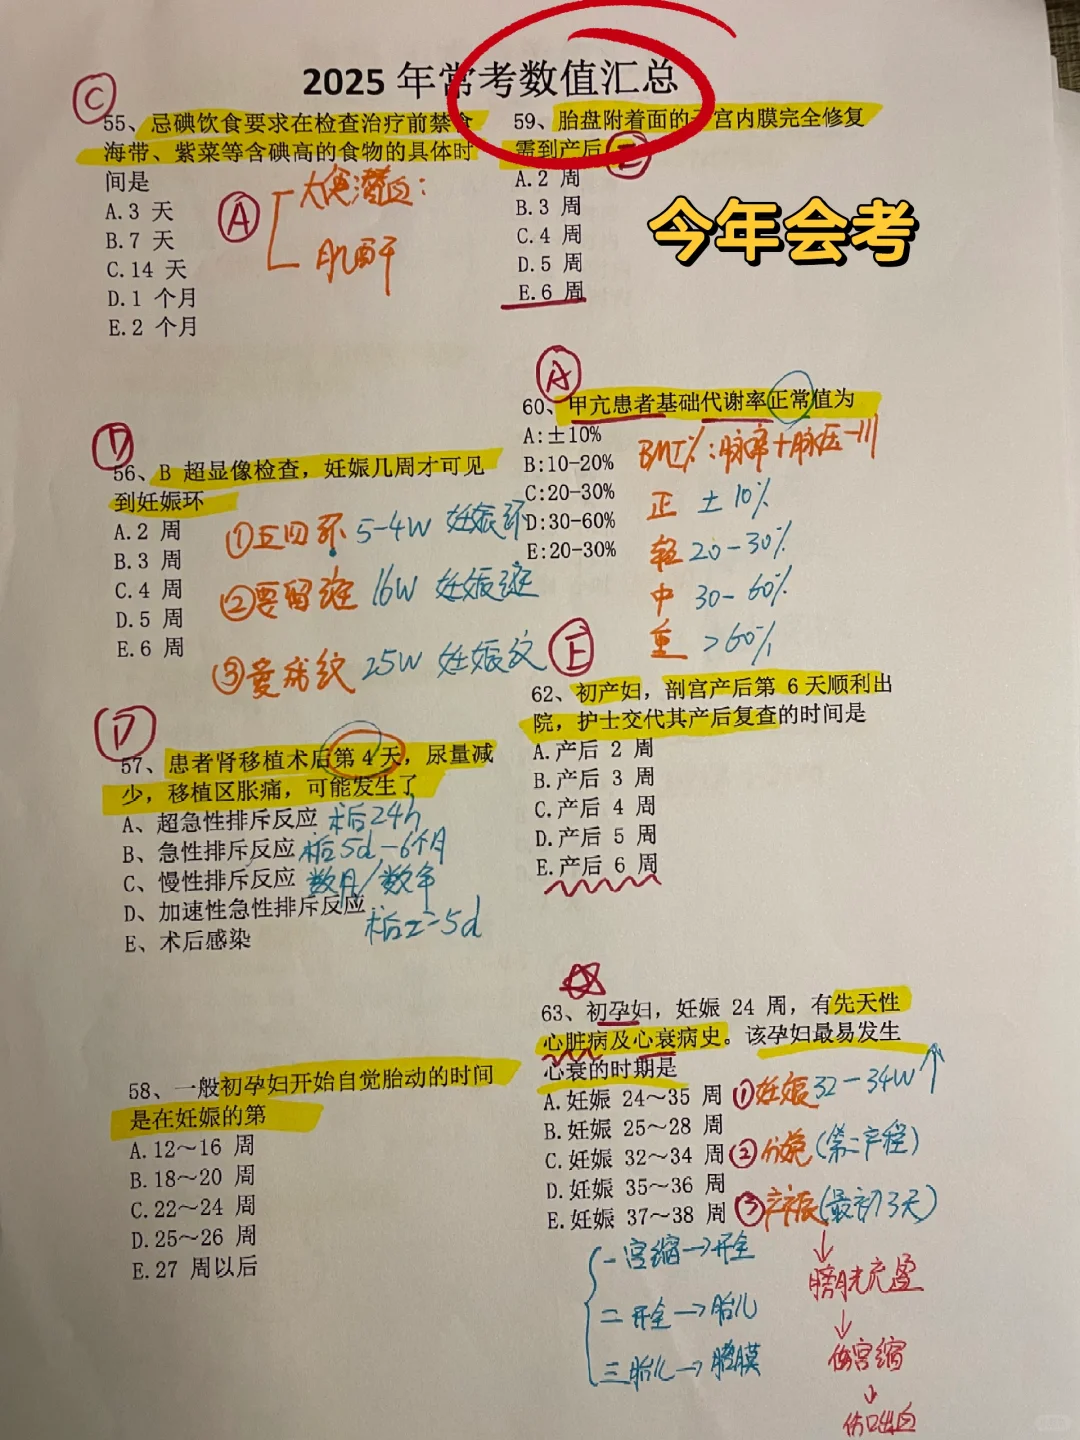 2025 年常考数值汇总
今年会考
C
55、忌碘饮食要求在检查治疗前禁食
海带、紫菜等含碘高的食物的具体时
间是
A.3 天
B.7 天
C.14 天
D.1 个月
E.2 个月
A
大便潜血:
肌酐
D
56、B 超显像检查，妊娠几周才可见
到妊娠环
A.2 周
B.3 周
C.4 周
D.5 周
E.6 周
①五四环 5-4W 妊娠环
②要留斑 16W 妊娠斑
③爱成纹 25W 妊娠纹
D
57、患者肾移植术后第 4 天，尿量减
少，移植区胀痛，可能发生了
A、超急性排斥反应 术后24h
B、急性排斥反应 术后5d-6个月
C、慢性排斥反应 数月/数年
D、加速性急性排斥反应 术后2-5d
E、术后感染
58、一般初孕妇开始自觉胎动的时间
是在妊娠的第
A.12～16 周
B.18～20 周
C.22～24 周
D.25～26 周
E.27 周以后
59、胎盘附着面的子宫内膜完全修复
需到产后
E
A.2 周
B.3 周
C.4 周
D.5 周
E.6 周
A
60、甲亢患者基础代谢率正常值为
A:±10%
B:10-20%
C:20-30%
D:30-60%
E:20-30%
BMI%:脉率+脉压-111
正 ±10%
轻 20-30%
中 30-60%
重 >60%
E
62、初产妇，剖宫产后第 6 天顺利出
院，护士交代其产后复查的时间是
A.产后 2 周
B.产后 3 周
C.产后 4 周
D.产后 5 周
E.产后 6 周
63、初孕妇，妊娠 24 周，有先天性
心脏病及心衰病史。该孕妇最易发生
心衰的时期是
A.妊娠 24～35 周
B.妊娠 25～28 周
C.妊娠 32～34 周
D.妊娠 35～36 周
E.妊娠 37～38 周
①妊娠32-34W↑
②分娩(第二产程)
③产褥(最初3天)
一 宫缩→开全
二 开全→胎儿
三 胎儿→胎膜
↓
膀胱充盈
↓
伤宫缩
↓
伤口出血